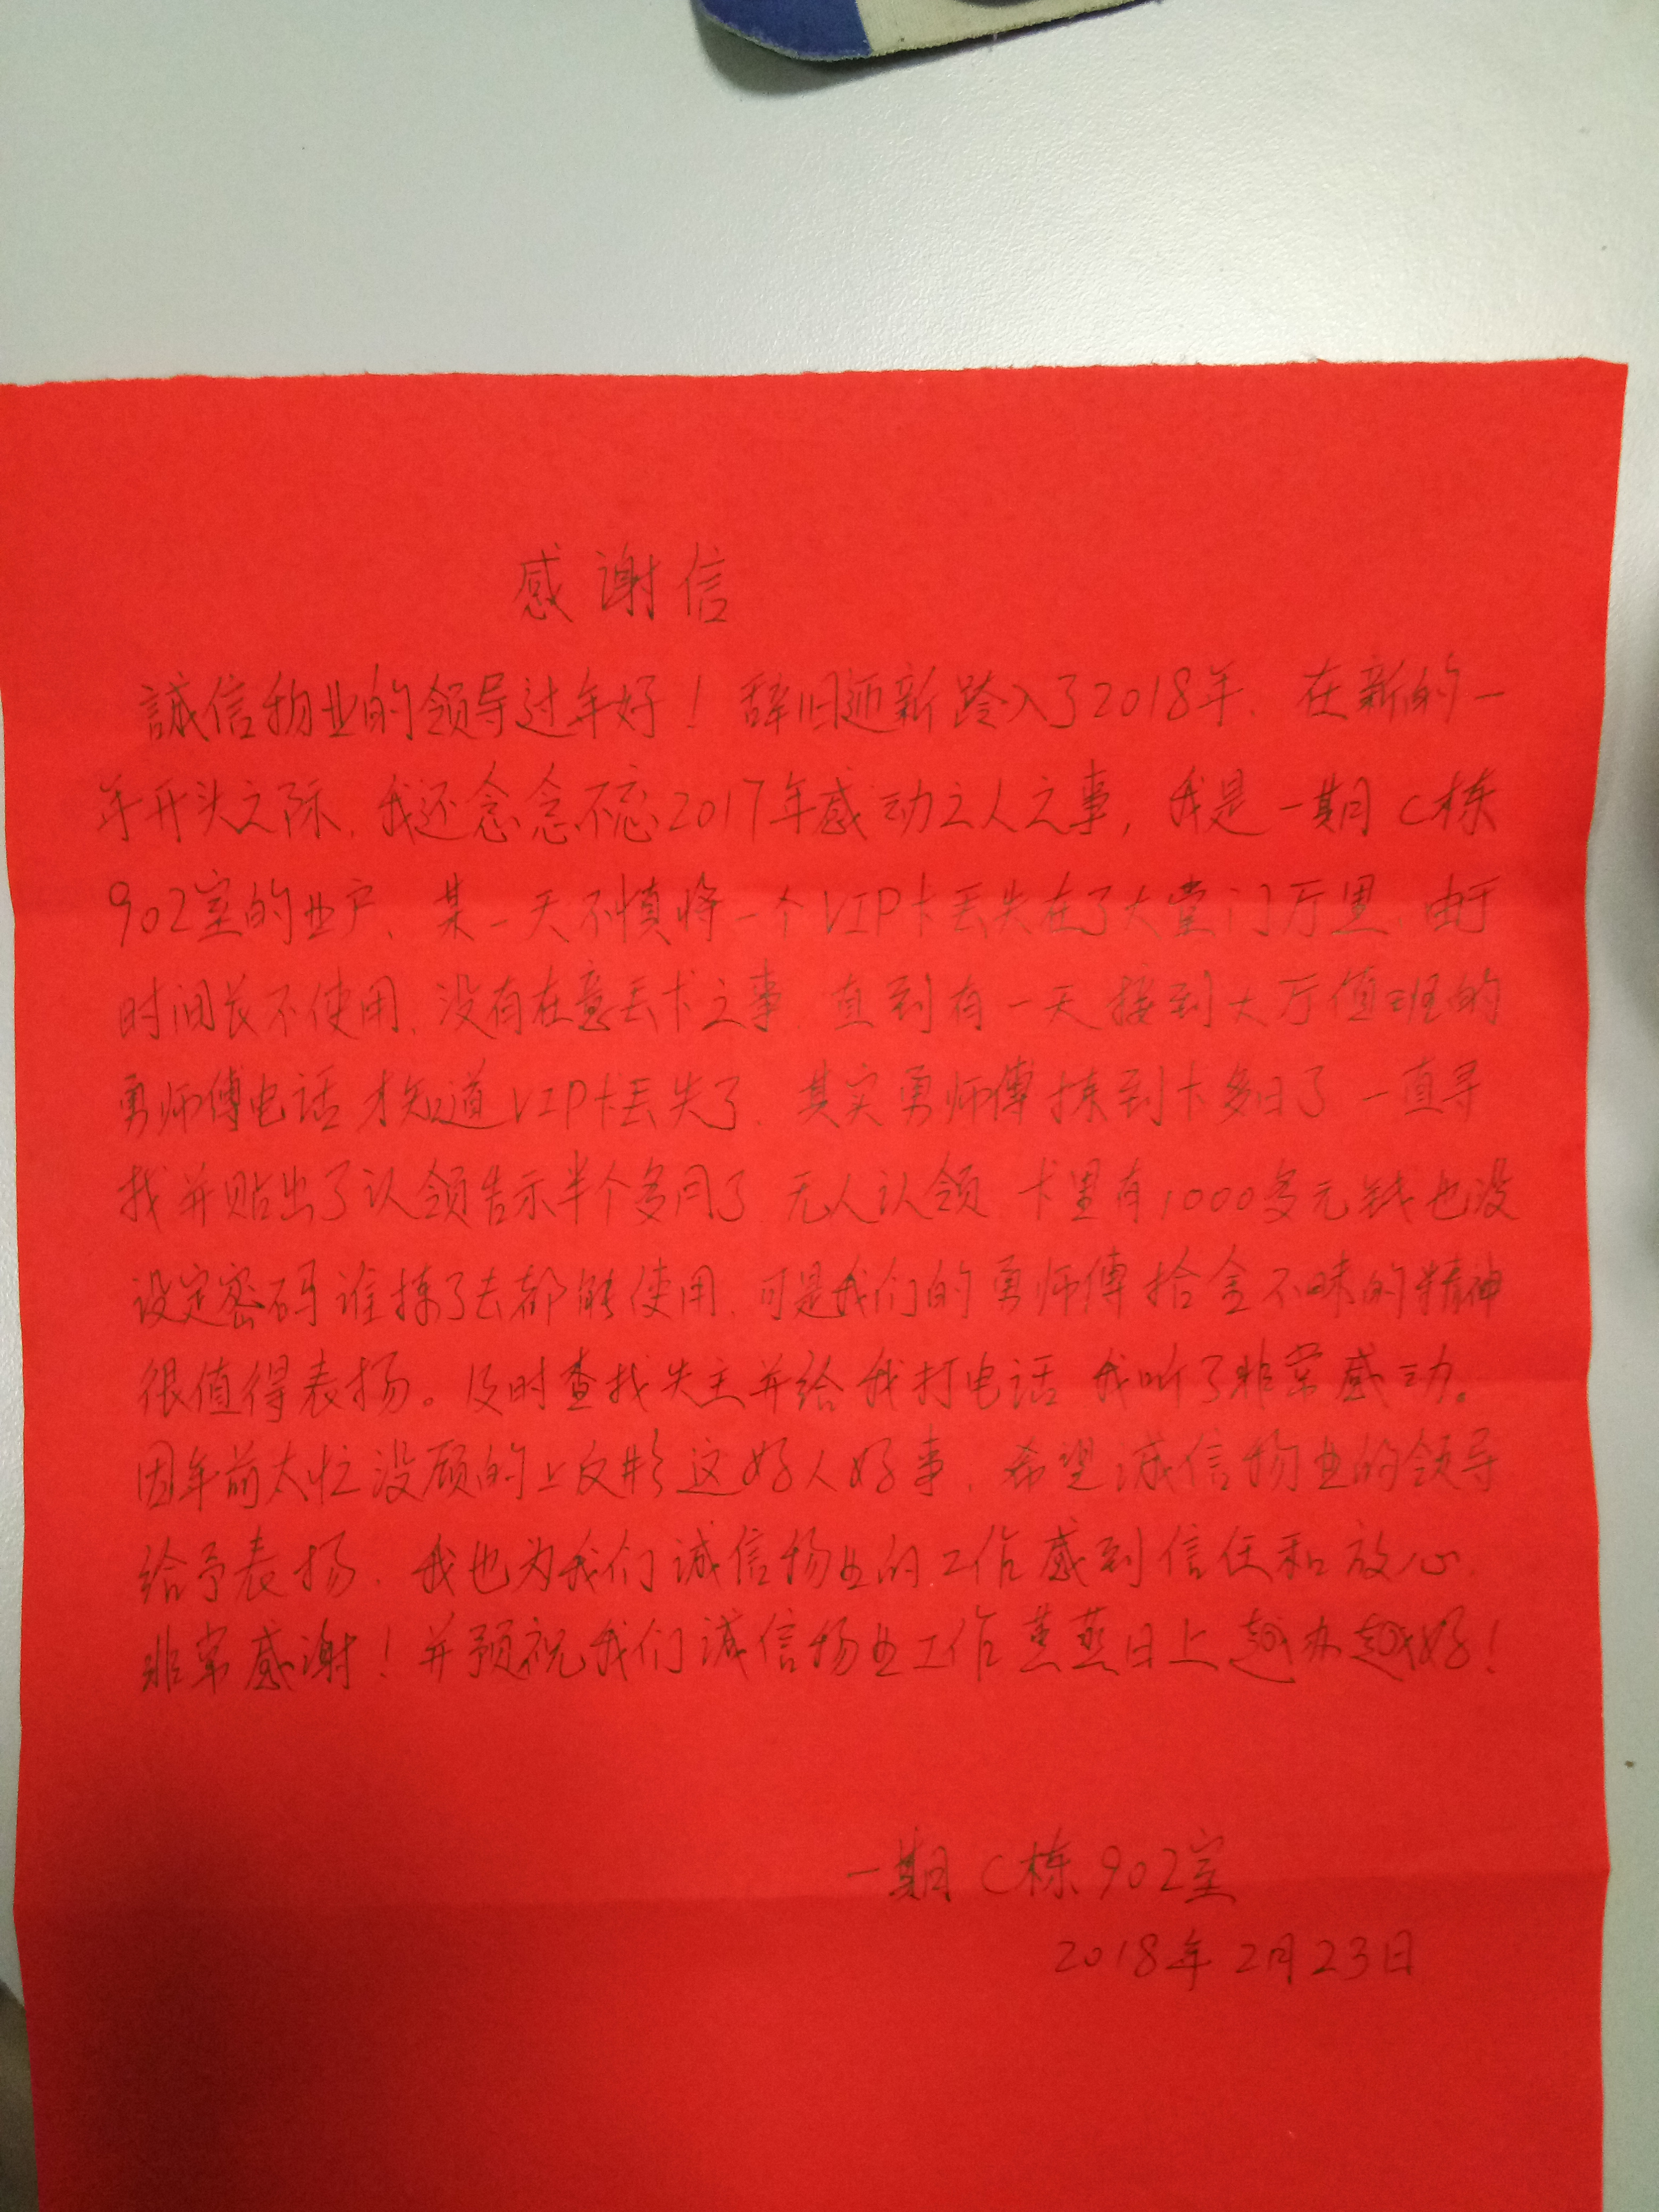 感谢信
誠信物业的领导过年好！辞旧迎新跨入了2018年，在新的一
年开头之际，我还念念不忘2017年感动之人之事，我是一期C栋
902室的业户、某一天不慎将一个VIP卡丢失在了大堂门厅里，由于
时间长不使用，没有在意丢卡之事，直到有一天接到大厅值班的
勇师傅电话才知道VIP卡丢失了，其实勇师傅拣到卡多日了一直寻
找并贴出了认领告示半个多月了，无人认领，卡里有1000多元钱也没
设定密码谁拣了去都能使用，可是我们的勇师傅拾金不昧的精神
很值得表扬。及时查找失主并给我打电话 我听了非常感动。
因年前太忙没顾的上反映这好人好事，希望诚信物业的领导
给予表扬，我也为我们诚信物业的工作感到信任和放心.
非常感谢！并预祝我们诚信物业工作蒸蒸日上越办越好！
一期C栋902室
2018年2月23日